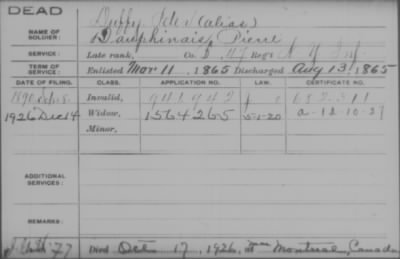 DEAD
NAME OF SOLDIER: Duffy, Peter (alias)
Dauphinais, Pierre
SERVICE: Late rank, Co. D, 47 Reg't N Y Inf.
TERM OF SERVICE: Enlisted Mar 11, 1865 Discharged Aug 13, 1865
DATE OF FILING. CLASS. APPLICATION NO. LAW. CERTIFICATE NO.
1890 Invalid, 941942
1926 Dec 14 Widow, 1564265 5-1-20 a-12-10-27
Minor,
ADDITIONAL SERVICES:
REMARKS:
Died Oct 17, 1926, at Montreal, Canada